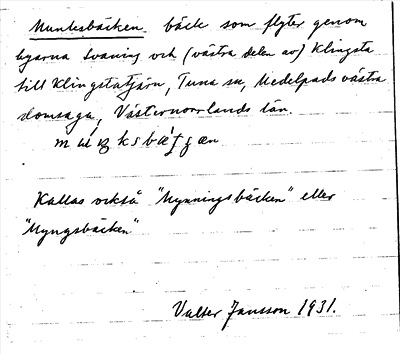 Munkesbäcken, bäck som flyter genom
byarna Svaning och (västra delen av) Klingsta
till Klingstatjärn, Tuna sn, Medelpads västra
domsaga, Västernorrlands län.
Kallas också "Mynningsbäcken" eller
"Myngsbäcken"
Valter Jansson 1931.